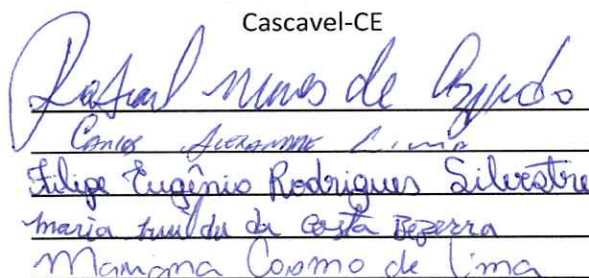 Cascavel-CE
Rafael Nunes de Azevedo
Carlos Alexandre Lima
Filipe Eugênio Rodrigues Silvestre
Maria da Costa Bezerra
Mariana Cosmo de Lima